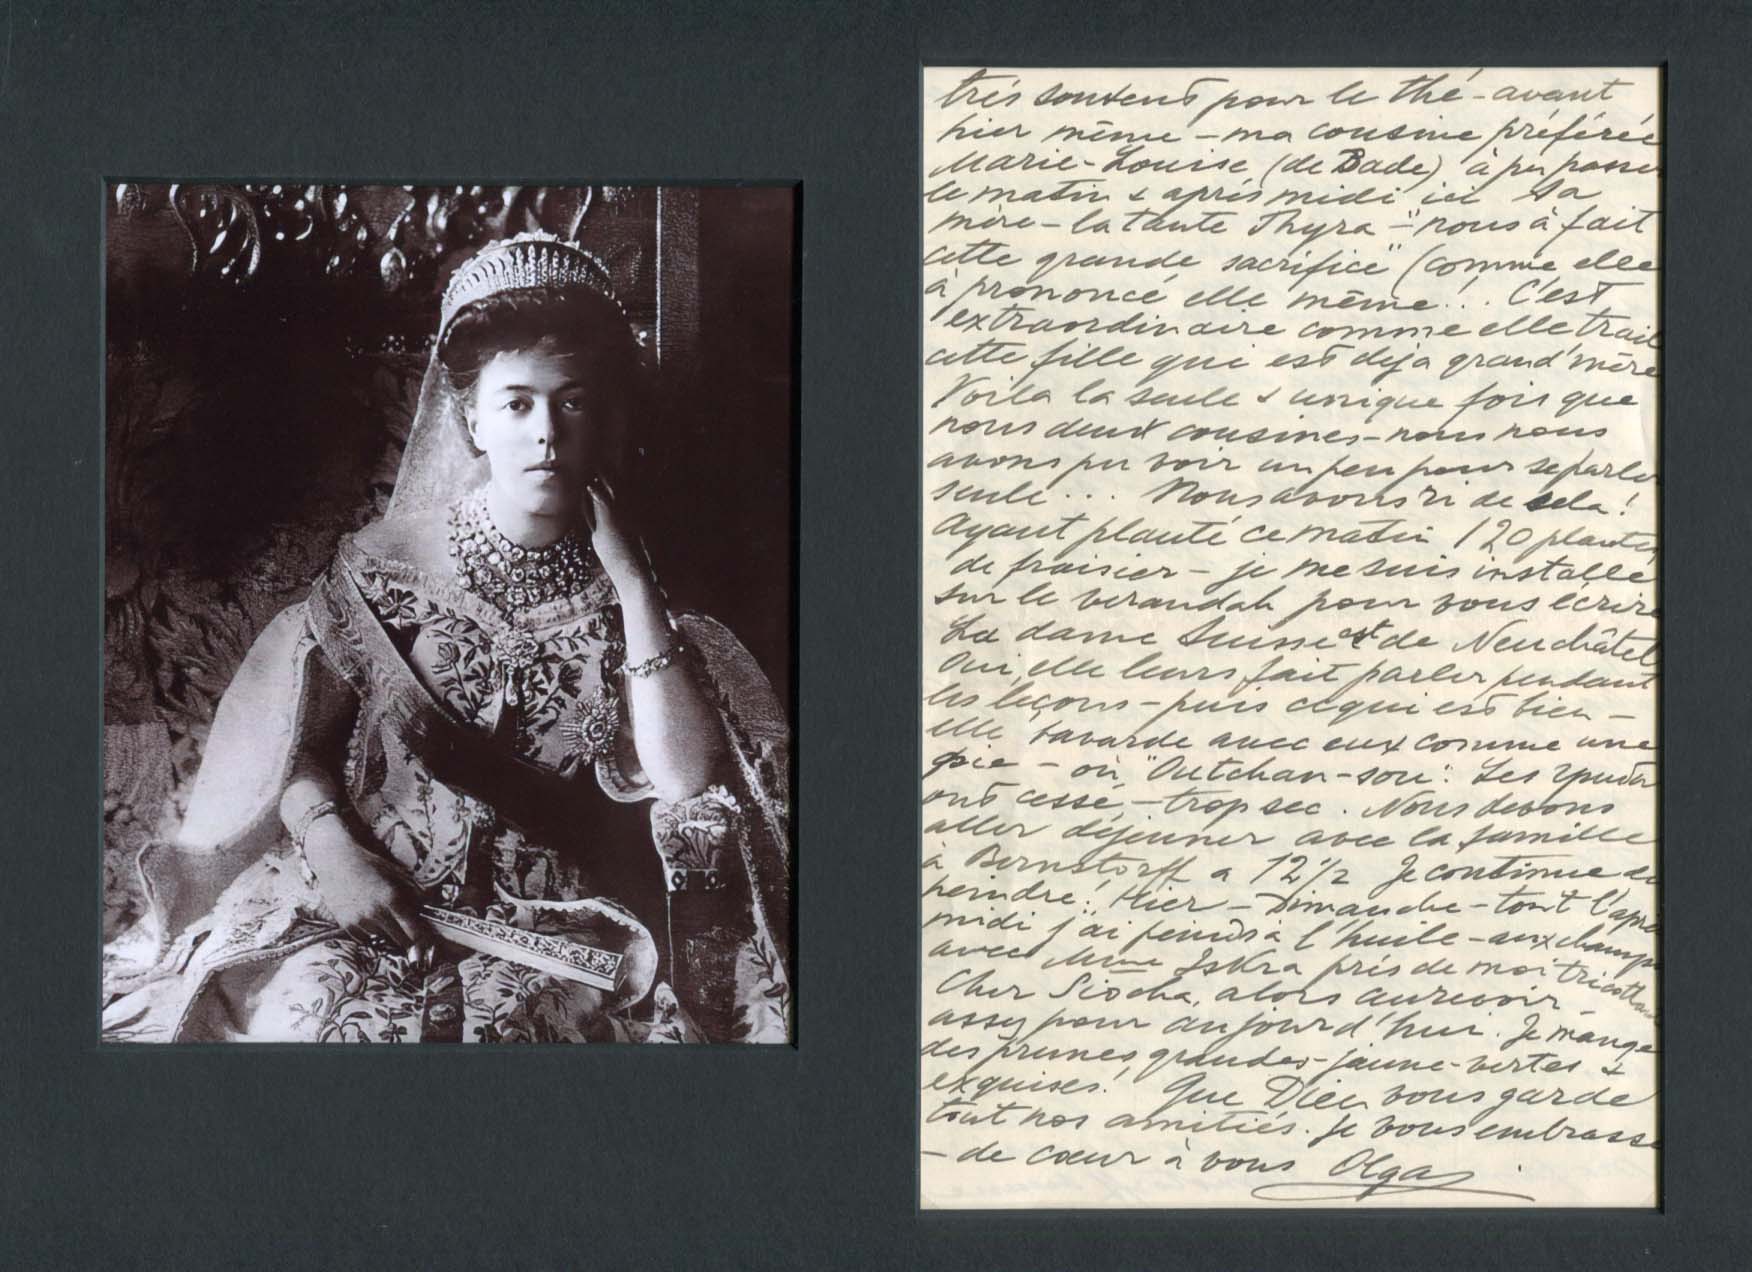 très souvent pour le thé - avant
hier même - ma cousine préférée
Marie-Louise (de Bade) à pu passer
le matin & après midi ici Sa
mère - la tante Thyra - "nous à fait
cette grande sacrifice" (comme elle
à prononcé elle même!.. C'est
extraordinaire comme elle trait
cette fille qui est déja grand'mère
Voila la seule & unique fois que
nous deux cousines - nous nous
avons pu voir un peu pour se parler
seule ... Nous avons ri de cela!
Ayant planté ce matin 120 plantes
de fraisier - je me suis installé
sur le verandah pour vous écrire
La dame Suisse est de Neuchâtel
Oui, elle leurs fait parler pendant
les leçons - puis ce qui est bien -
elle bavarde avec eux comme une
pie - ou "Outchan-sou". Les
ont cessé - trop sec. Nous devons
aller déjeuner avec la famille
à Bernstorff a 12½ Je continue de
peindre! Hier - Dimanche - tout l'après
midi j'ai peint à l'huile - aux champs
avec Mme Iskra près de moi tricottant
Cher Siocha, alors aurevoir
assez pour aujourd'hui. Je mange
des prunes, grandes - jaune-vertes &
exquises! Que Dieu vous garde
tout nos amitiés. Je vous embrasse
- de cœur à vous Olga